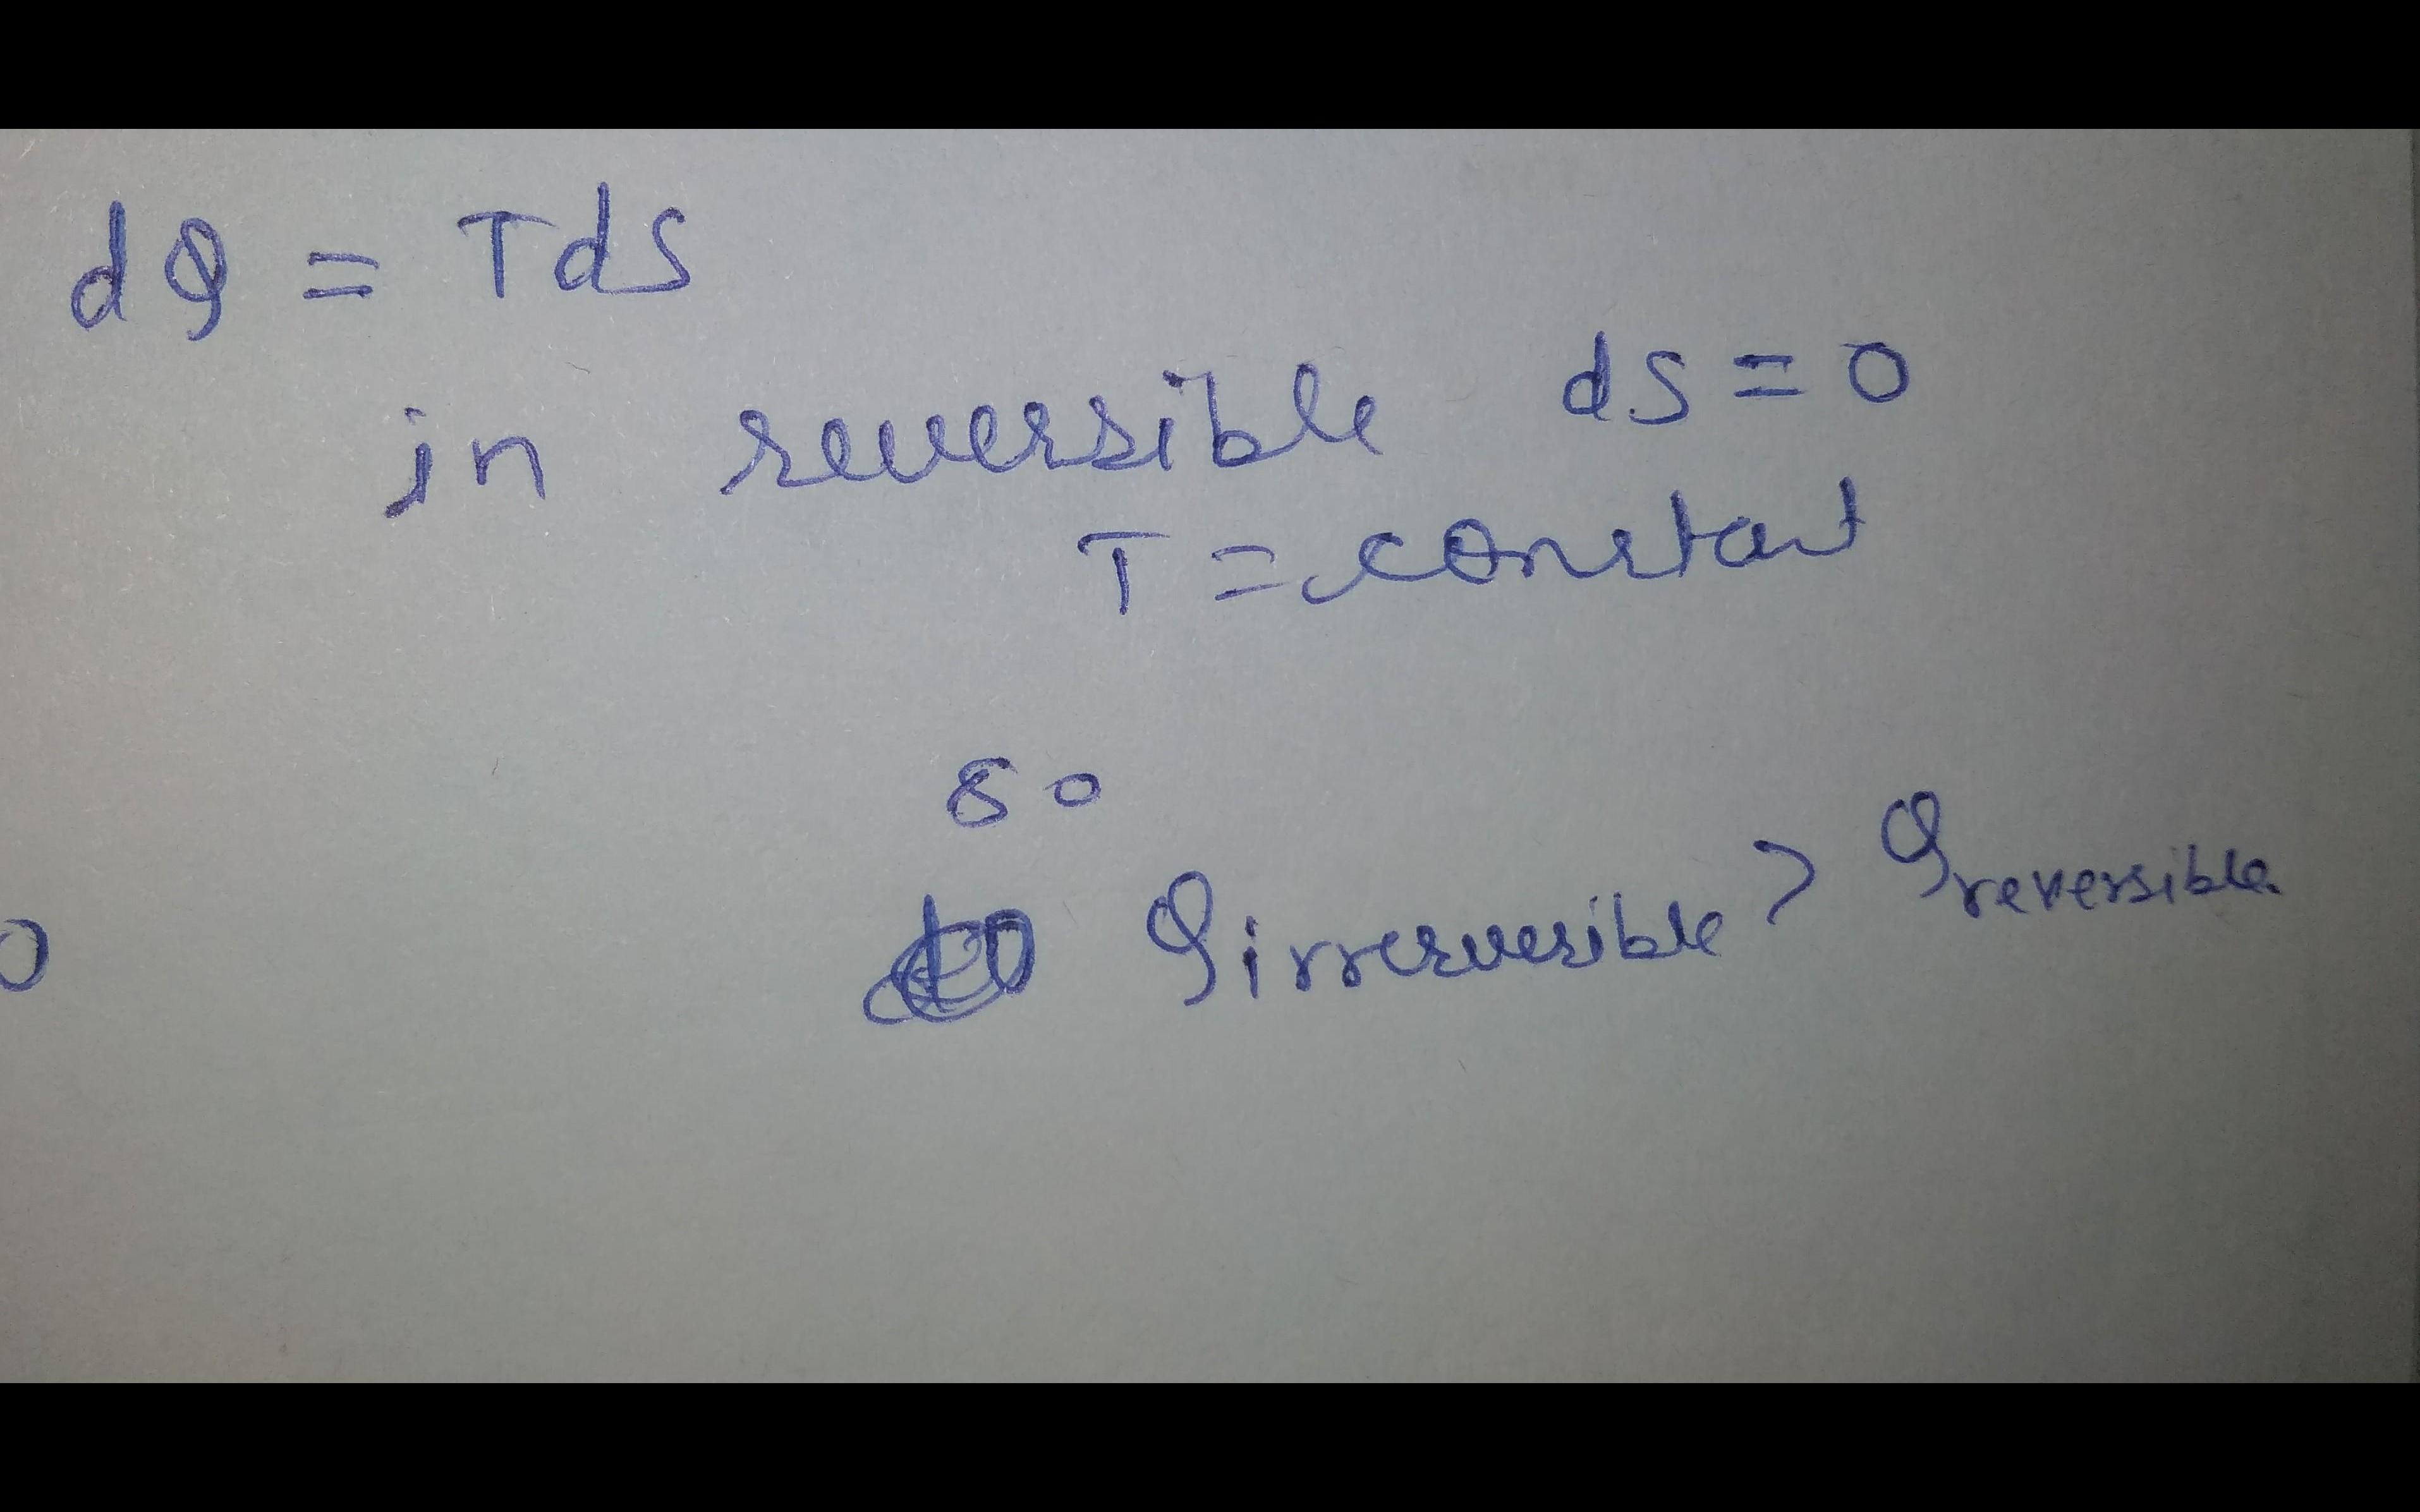 dQ = Tds
in reversible ds = 0
T = constant
so
Qirrerversible > Qreversible.